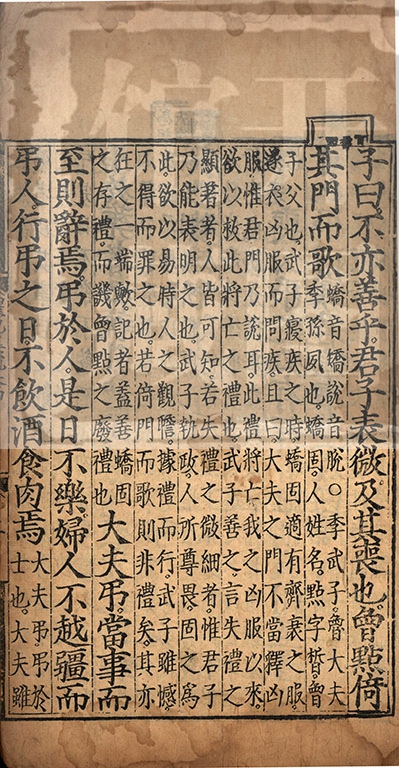 子曰不亦善乎君子表微及其喪也曾點倚
其門而歌
蟜音矯說音脫○季武子魯大夫
季孫夙也蟜固人姓名點字晳曾
子父也武子寢疾之時蟜固適有齊衰之服
遂衣凶服而問疾且曰大夫之門不當釋凶
服惟君門乃說耳此禮將亡我之凶服以來
欲以救此將亡之禮也武子善之言失禮之
顯著者人皆可知若失禮之微細者惟君子
乃能表明之也武子執政人所尊畏固之爲
此欲以易時人之觀瞻據禮而行武子雖憾
不得而罪之也若倚門而歌則非禮矣其亦
狂之一端歟記者蓋善蟜固
之存禮而譏曾點之廢禮也
大夫弔當事而
至則辭焉弔於人是日不樂婦人不越疆而
弔人行弔之日不飲酒食肉焉
大夫弔弔於
士也大夫雖